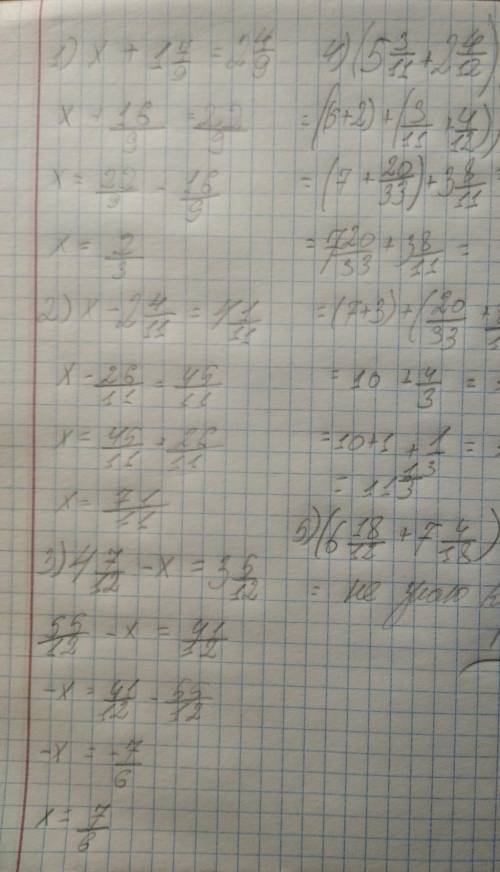 1) x + 1 7/9 = 2 4/9
x + 16/9 = 22/9
x = 22/9 - 16/9
x = 2/3
2) x - 2 4/11 = 4 1/11
x - 26/11 = 45/11
x = 45/11 + 26/11
x = 71/11
3) 4 7/12 - x = 3 5/12
55/12 - x = 41/12
-x = 41/12 - 55/12
-x = -7/6
x = 7/6
4) (5 3/11 + 2 4/12)
= (5+2) + (3/11 + 4/12)
= (7 + 20/33) + 3 8/11 =
= 7 20/33 + 3 8/11 =
= (7+3) + (20/33 +
= 10 + 4/3 =
= 10+1 + 1/3 =
= 11 1/3
5) (6 18/12 + 7 4/18)
= не знаю